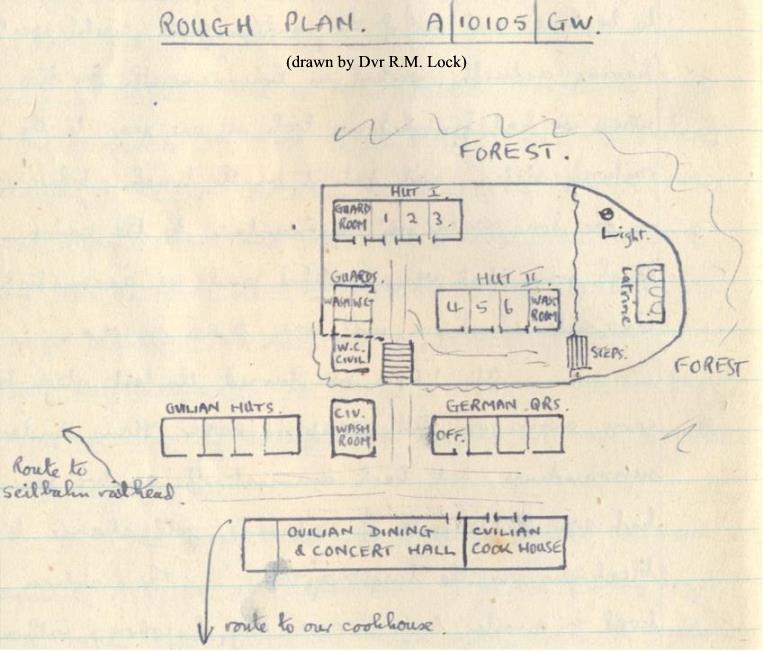 ROUGH PLAN. A|10105|GW.
(drawn by Dvr R.M. Lock)
FOREST.
HUT I
GUARD
ROOM
1 2 3.
Light.
GUARDS.
WASH
W.C. CIVIL
HUT II
4 5 6
WASH
ROOM
Latrine
STEPS.
FOREST
CIVILIAN HUTS.
CIV.
WASH
ROOM
GERMAN QRS.
OFF.
Route to
seilbahn railhead.
CIVILIAN DINING
& CONCERT HALL
CIVILIAN
COOK HOUSE
route to our cookhouse.